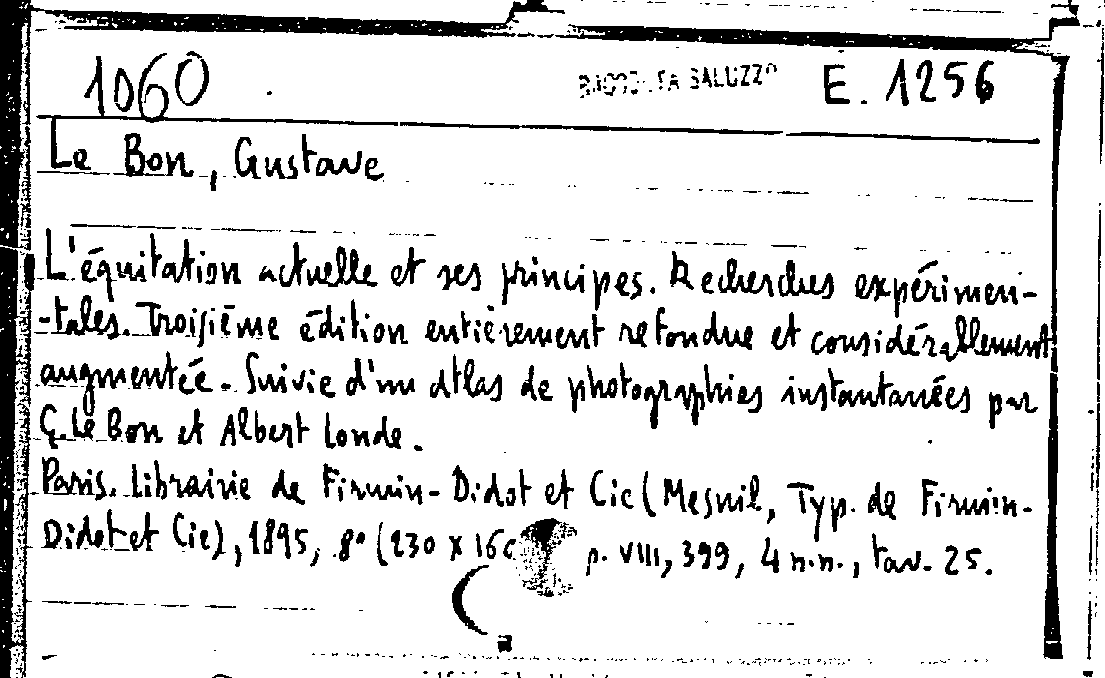 1060 RACCOLTA SALUZZO E. 1256
Le Bon, Gustave
L'équitation actuelle et ses principes. Recherches expérimen-
-tales. Troisième édition entièrement refondue et considérablement
augmentée. Suivie d'un atlas de photographies instantanées par
G. Le Bon et Albert Londe.
Paris. Librairie de Firmin-Didot et Cie (Mesnil, Typ. de Firmin-
Didot et Cie), 1895, 8° (230 x 160 p. VIII, 399, 4 n.n., tav. 25.